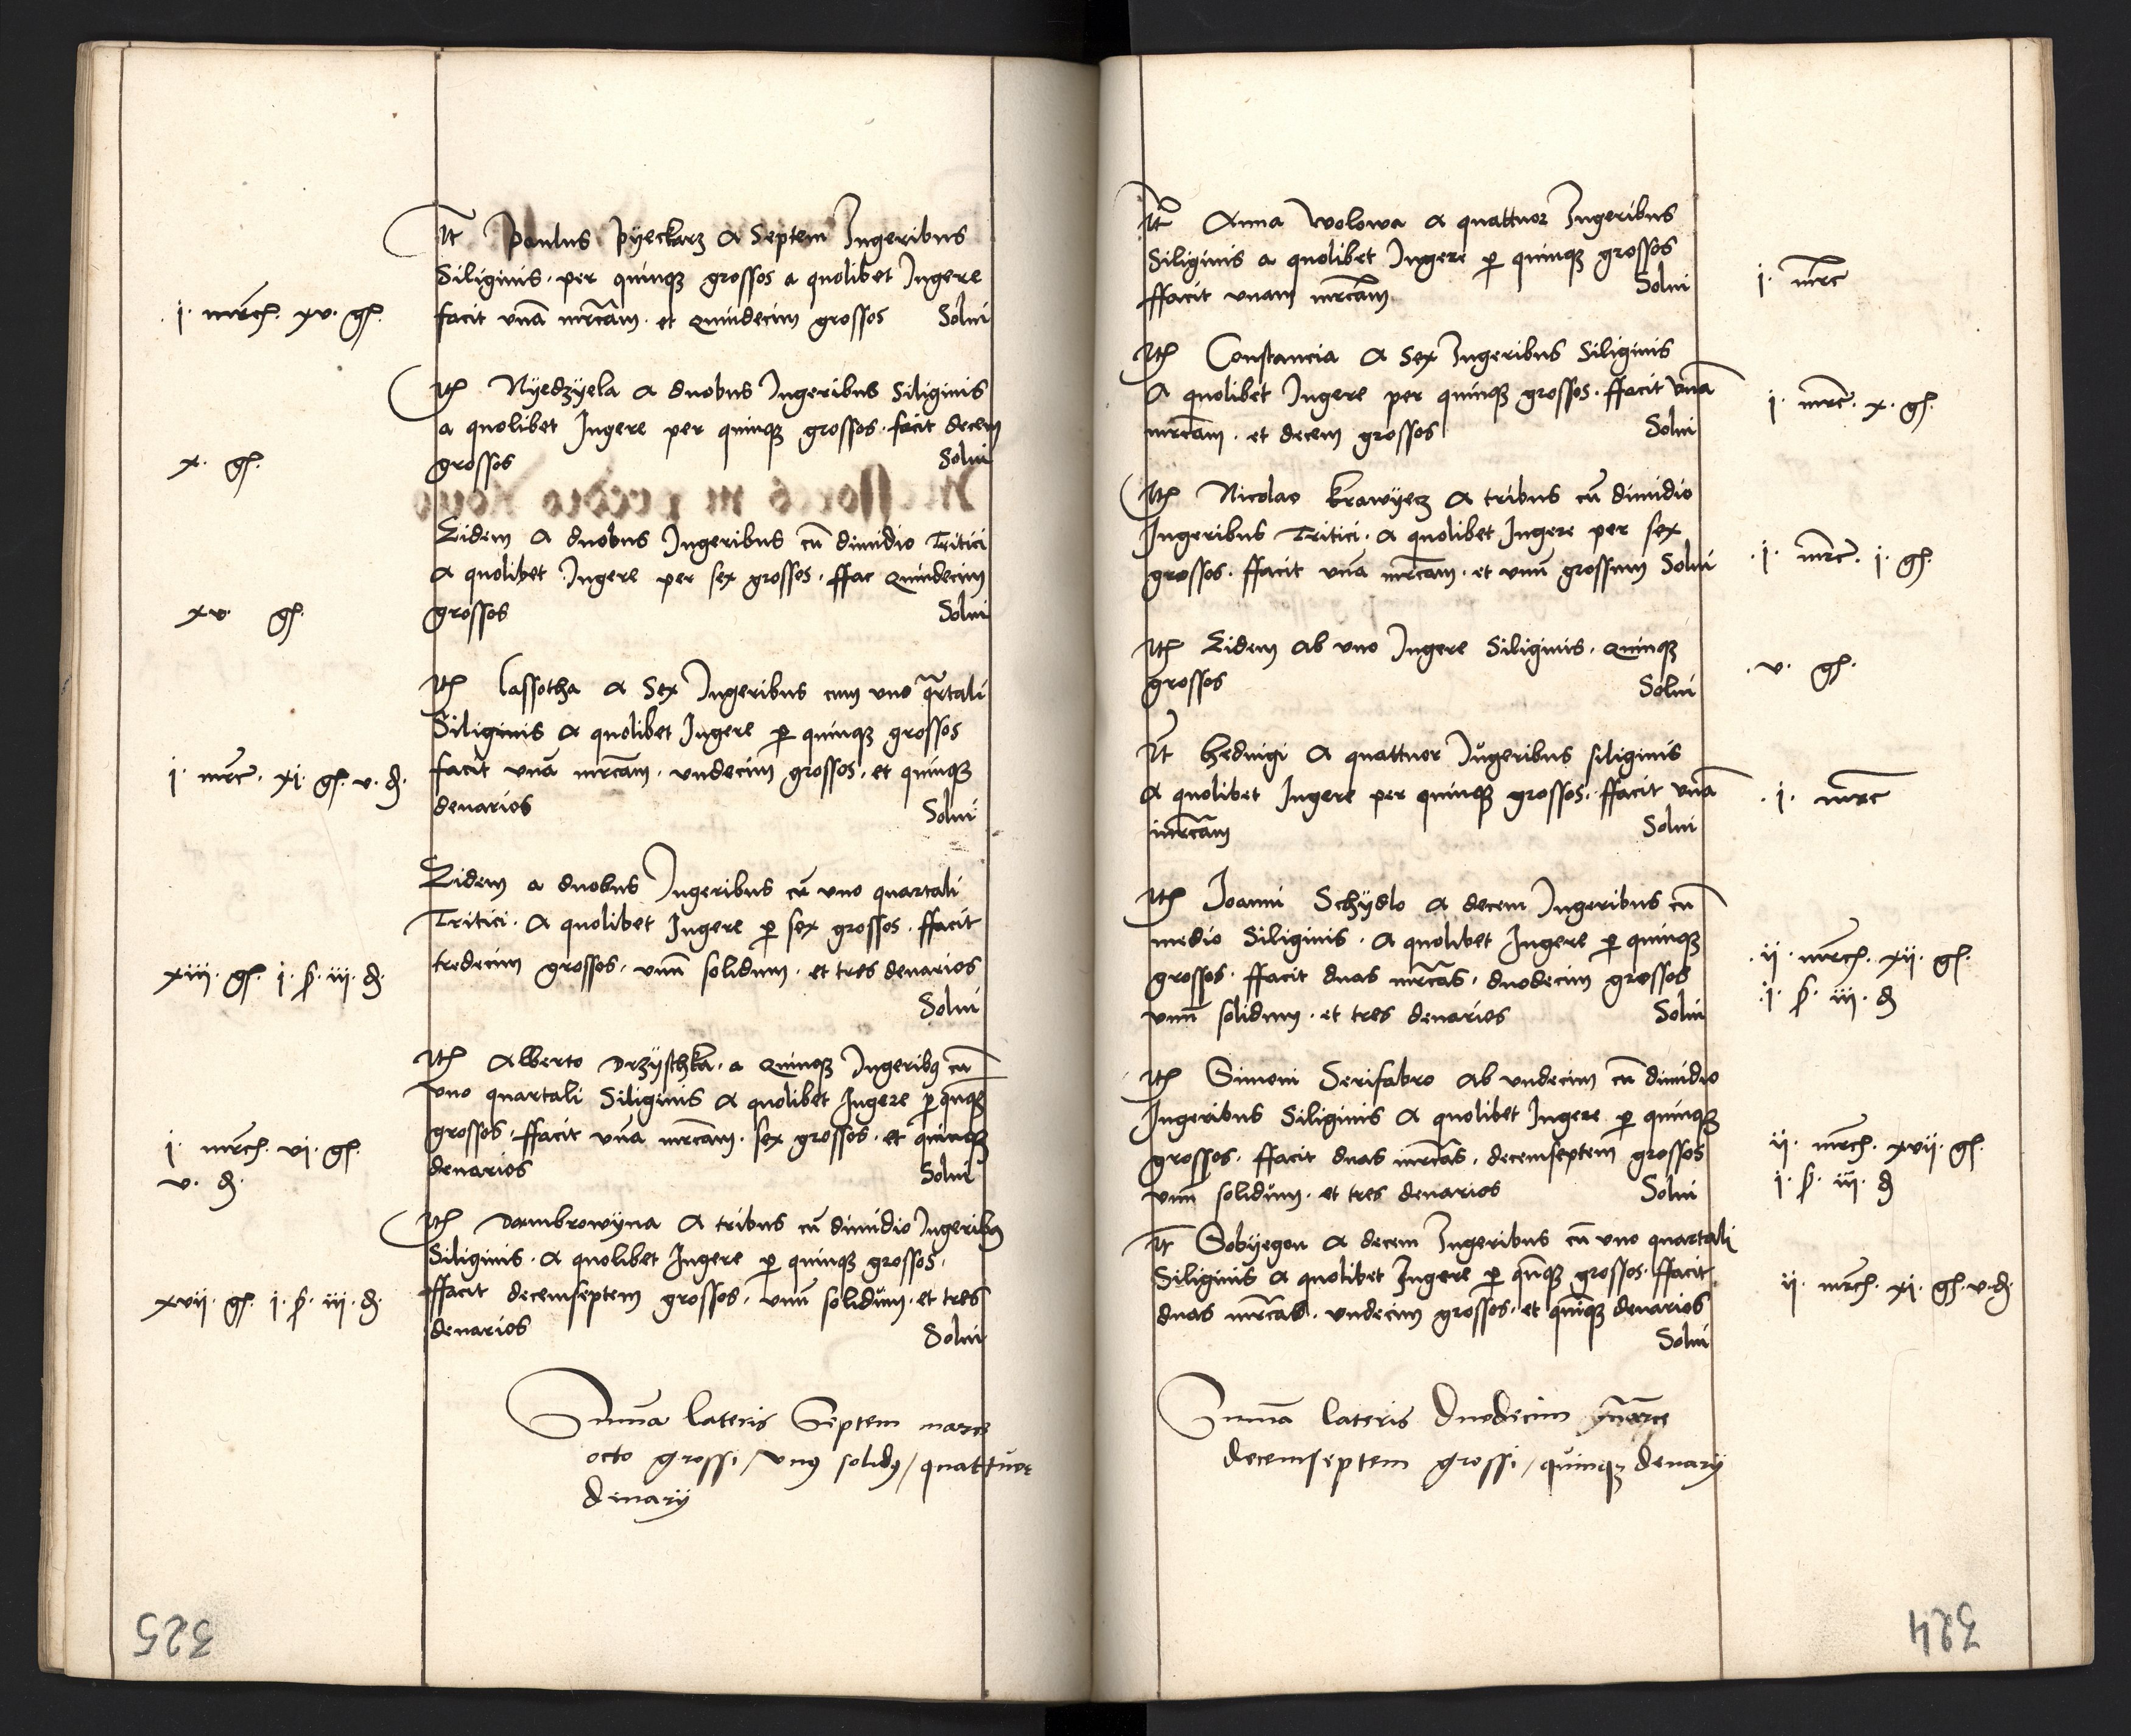 It Paulus Pyeckarz A Septem Iugeribus
Siliginis. per quinqz grossos a quolibet Iugere
.i. mrch. xv. gs. facit vna mrcam. et quindecim grossos Solui
Ite Nyedzyela A duobus Iugeribus Siliginis
a quolibet Iugere per quinqz grossos. facit decem
x. gs. grossos Solui
Eidem A duobus Iugeribus cu dimidio Tritici
A quolibet Iugere per sex grossos. ffac quindecim
xv. gs. grossos Solui
Ite Lassotha A Sex Iugeribus cum vno qrtali
Siliginis A quolibet Iugere p quinqz grossos
i. mrc. xi. gs. v. d. facit vna mrcam. vndecim grossos. et quinqz
denarios Solui
Eidem a duobus Iugeribus cu vno quartali
Tritici. A quolibet Iugere p sex grossos. ffacit
xiii. gs. i. s. iii. d. tredecim grossos. vnu solidum. et tres denarios
Solui
Ite Alberto Drzyschka. a quinqz Iugeribus cu
vno quartali Siliginis A quolibet Iugere p quinqz
i. mrch. vi. gs. grossos. ffacit vna mrcam. sex grossos. et quinqz
v. d. denarios Solui
Ite Dambrowyna A tribus cu dimidio Iugeribus
Siliginis. A quolibet Iugere p quinqz grossos.
xvii. gs. i. s. iii. d. ffacit decemseptem grossos. vnu solidum. et tres
denarios Solui
Suma lateris Septem marce
octo grossi / vnus solidus / quattuor
Denarij
325
It Anna Wolowa A quattuor Iugeribus
Siliginis a quolibet Iugere p quinqz grossos
ffacit vnam mrcam Solui i. mrc
Ite Constancia A Sex Iugeribus Siliginis
A quolibet Iugere per quinqz grossos. ffacit vna i. mrc. x. gs.
mrcam. et decem grossos Solui
Ite Nicolao Krawyecz A tribus cu dimidio
Iugeribus Tritici. A quolibet Iugere per sex
grossos. ffacit vna mrcam. et vnu grossum Solui .i. mrc. i. gs.
Ite Eidem Ab vno Iugere Siliginis. quinqz
grossos Solui .v. gs.
It Heduigi A quattuor Iugeribus siliginis
A quolibet Iugere per quinqz grossos. ffacit vna .i. mrc
mrcam Solui
Ite Joanni Schydlo A decem Iugeribus cu
medio Siliginis. A quolibet Iugere p quinqz .ii. mrch. xii. gs.
grossos. ffacit duas mrcas. duodecim grossos .i. s. iii. d
vnu solidum. et tres denarios Solui
Ite Simoni Serifabro Ab vndecim cu dimidio
Iugeribus Siliginis A quolibet Iugere p quinqz
grossos. ffacit duas mrcas. decemseptem grossos ii. mrch. xvii. gs.
vnu solidum. et tres denarios Solui i. s. iii. d
It Sobyegon A decem Iugeribus cu vno quartali
Siliginis A quolibet Iugere p quinqz grossos. ffacit ii. mrch. xi. gs. v. d.
duas mrcas. vndecim grossos. et quinqz denarios
Solui
Suma lateris Duodecim marce
decemseptem grossi / quinqz Denarij
324